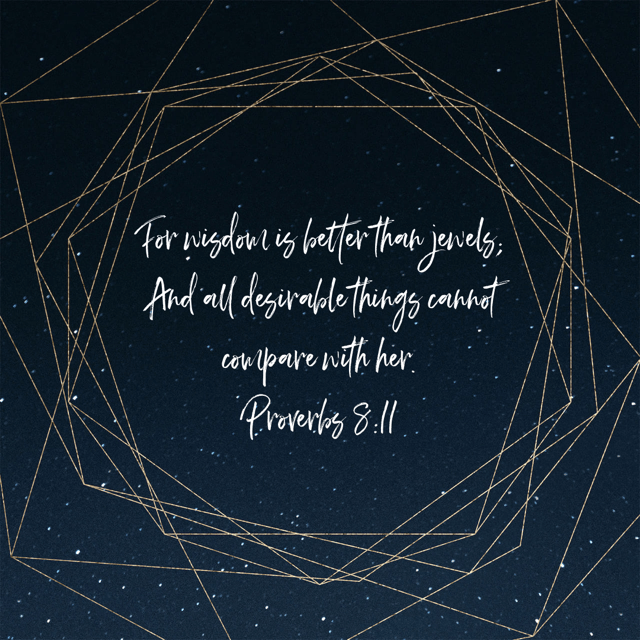 For wisdom is better than jewels;
And all desirable things cannot
compare with her.
Proverbs 8:11